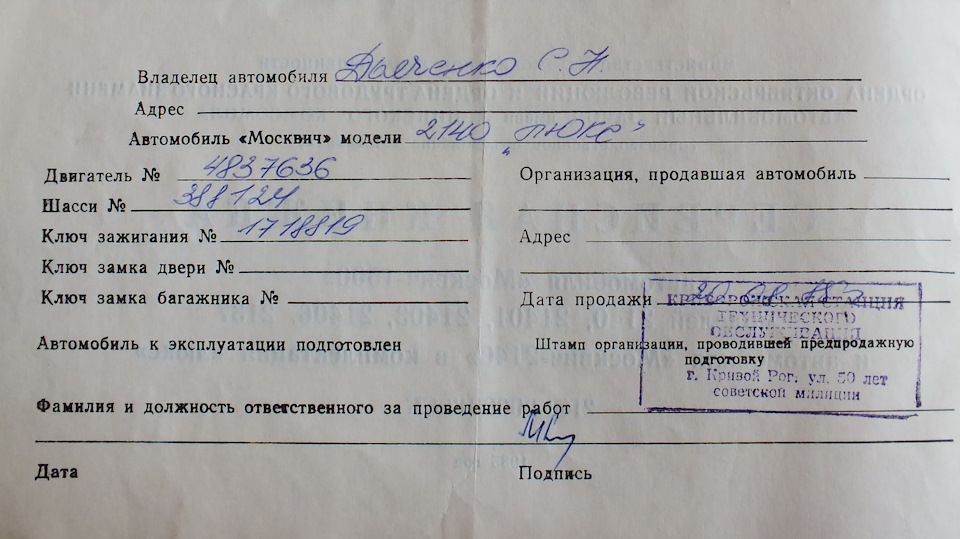 Владелец автомобиля Дьяченко С. Н.
Адрес
Автомобиль «Москвич» модели 2140 „люкс“
Двигатель № 4837636
Шасси № 388124
Ключ зажигания № 1718819
Ключ замка двери №
Ключ замка багажника №
Автомобиль к эксплуатации подготовлен
Организация, продавшая автомобиль
Адрес
Дата продажи
СТАНЦИЯ
ТЕХНИЧЕСКОГО
ОБСЛУЖИВАНИЯ
Штамп организации, проводившей предпродажную
подготовку
г. Кривой Рог, ул. 50 лет
советской милиции
Фамилия и должность ответственного за проведение работ
Дата
Подпись